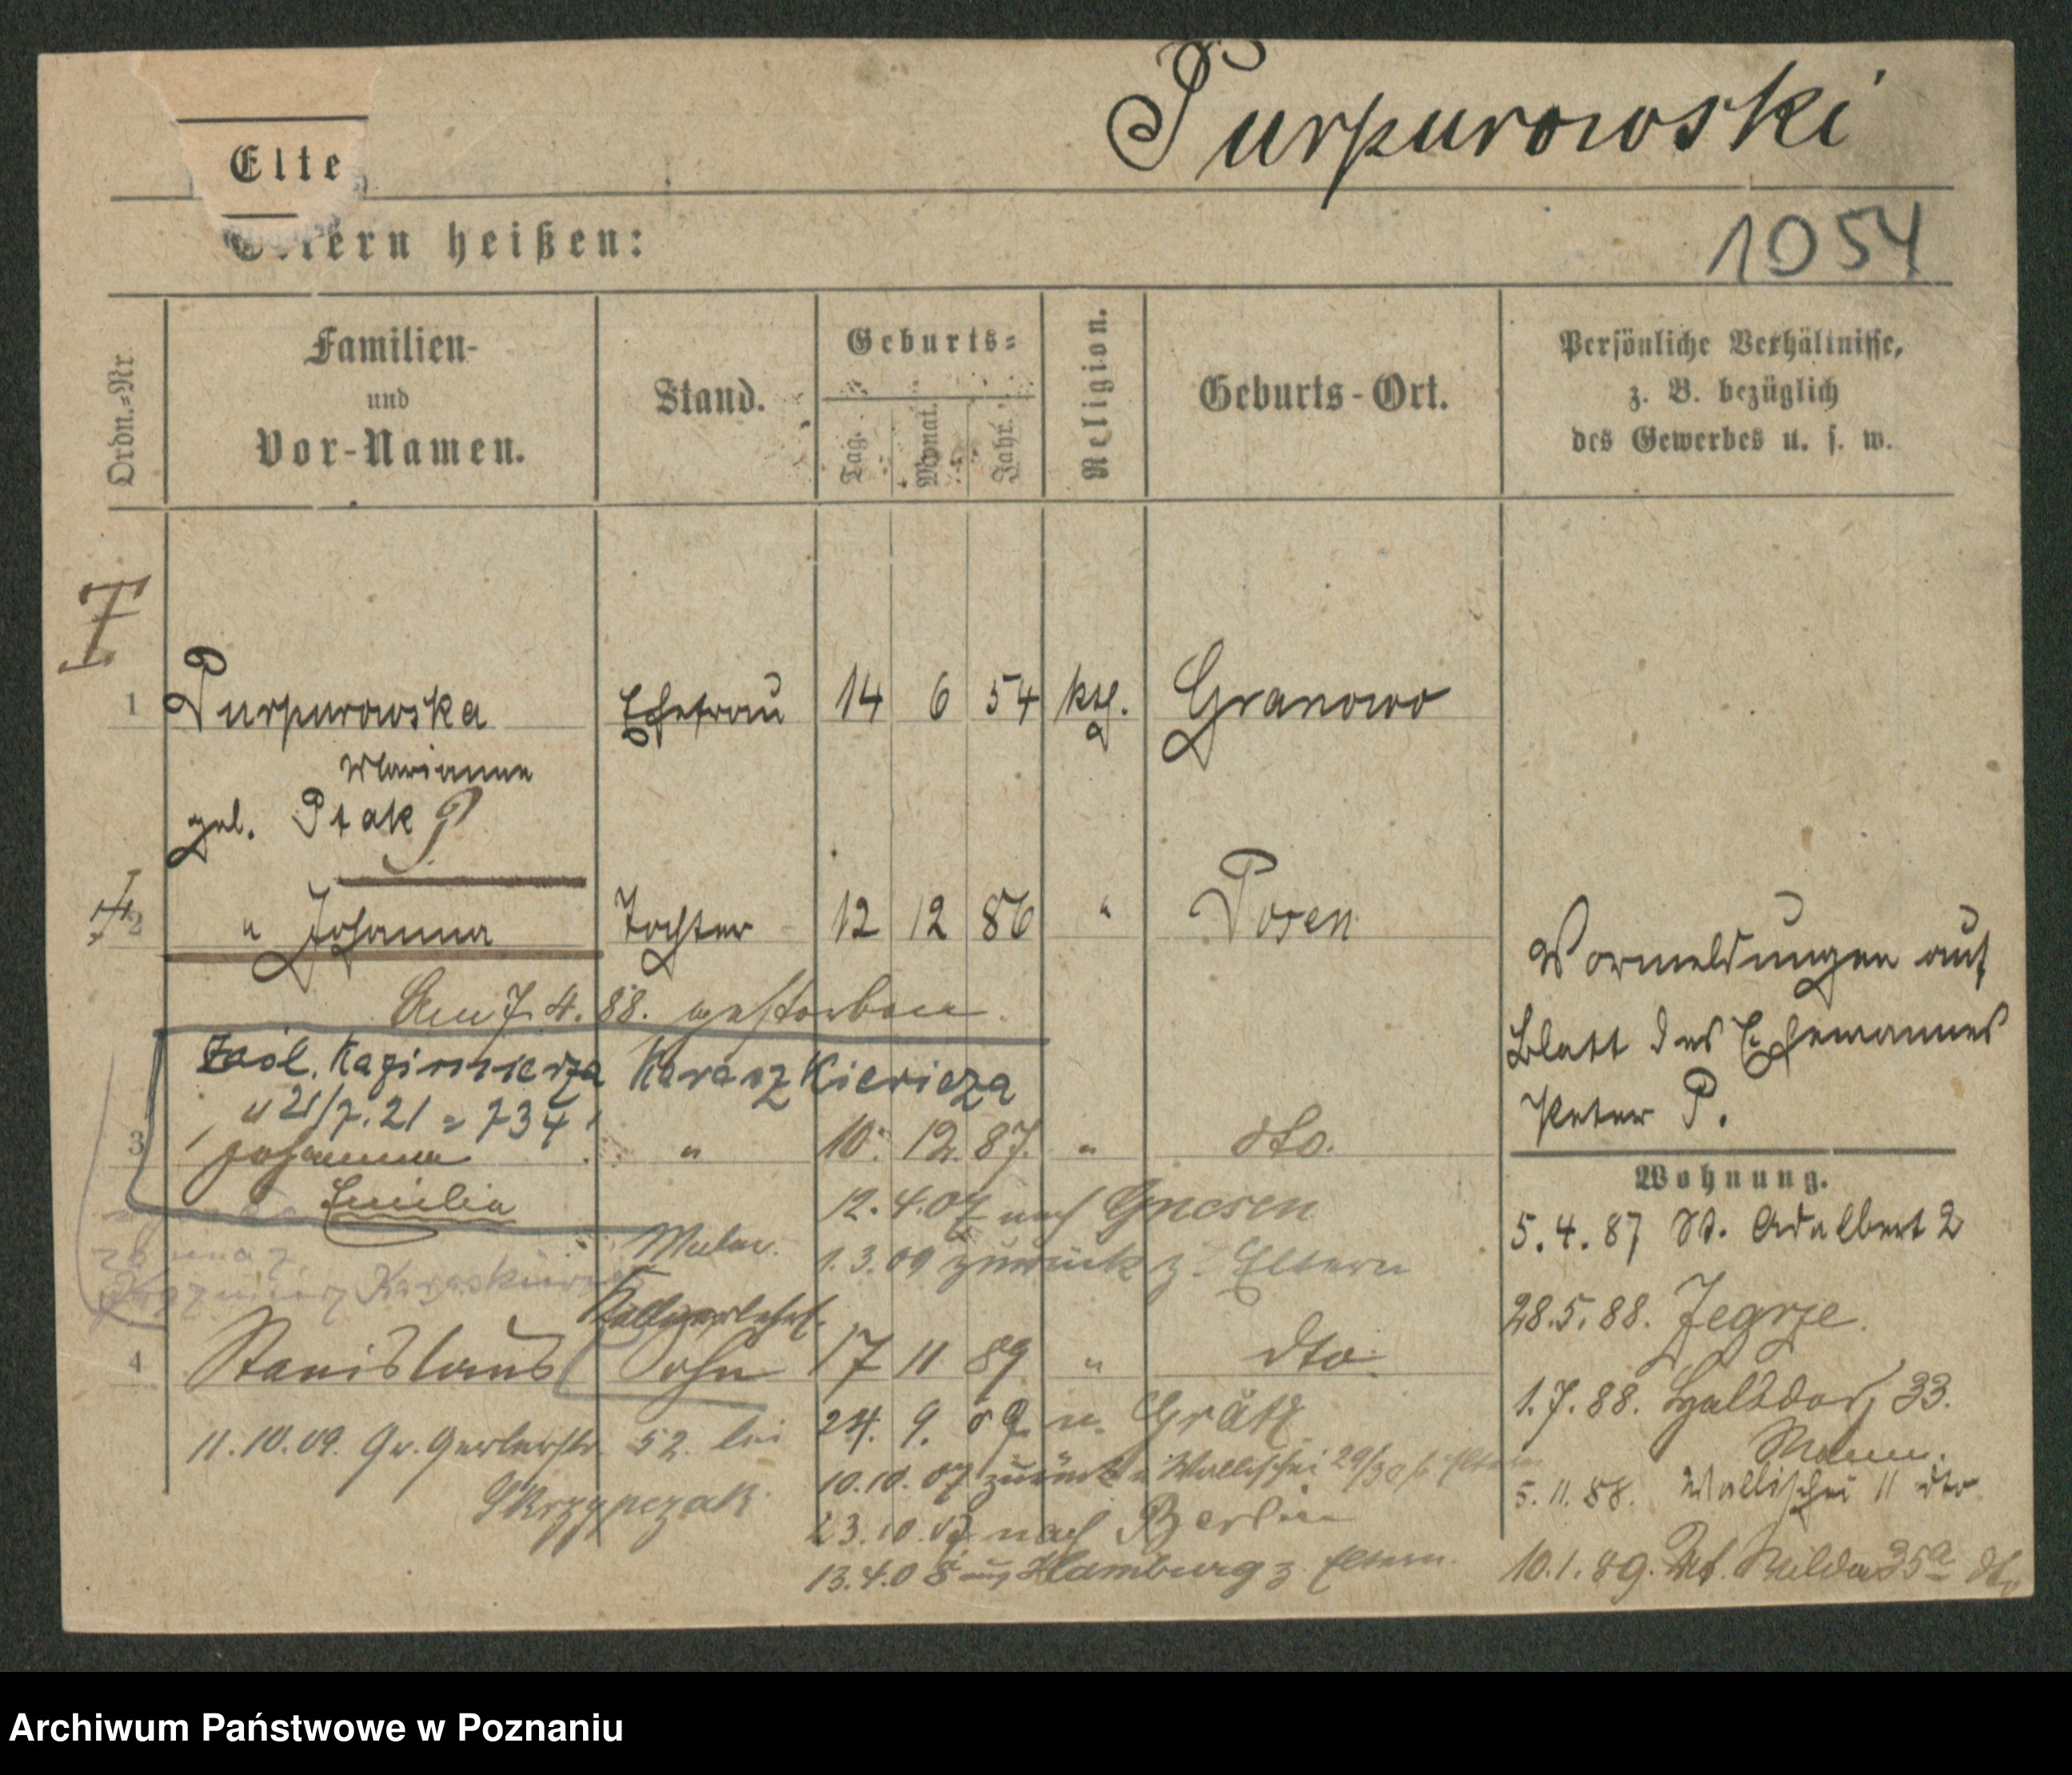 Purpurowski
Elte
Eltern heißen:
1054
Ordn.-Nr.
Familien-
und
Vor-Namen.
Stand.
Geburts-
Tag.
Monat.
Jahr.
Religion.
Geburts-Ort.
Persönliche Verhältnisse,
z. B. bezüglich
des Gewerbes u. s. w.
1 Purpurowska Ehefrau 14 6 54 kth. Granowo
Marianna
geb. Ptak
2 " Johanna Tochter 12 12 86 " Posen
Am 7.4.88. gestorben.
Kazimierza Karaszkiewicza
21/7.21 = 734
3 Johanna " 10. 12. 87. " dto.
Emilia
12.4.07 nach Gnesen
1.3.09 zurück z. Eltern
Kazimierz
4 Stanislaus Sohn 17 11 89 " dto.
24. 9. 09. n. Grätz
11.10.09. Gr. Gerberstr. 52. bei
Skrzypczak
10.10.07 zurück n. Wallischei 29/30
23.10.07 nach Berlin
13.4.08 aus Hamburg z. Eltern.
Vormeldungen auf
Blatt des Ehemannes
Peter P.
Wohnung.
5.4.87 St. Adalbert 2
28.5.88. Jegrze.
1.7.88. 33.
5.11.88. Wallischei 11 dto
10.1.89. Wilda 35a dto
Archiwum Państwowe w Poznaniu